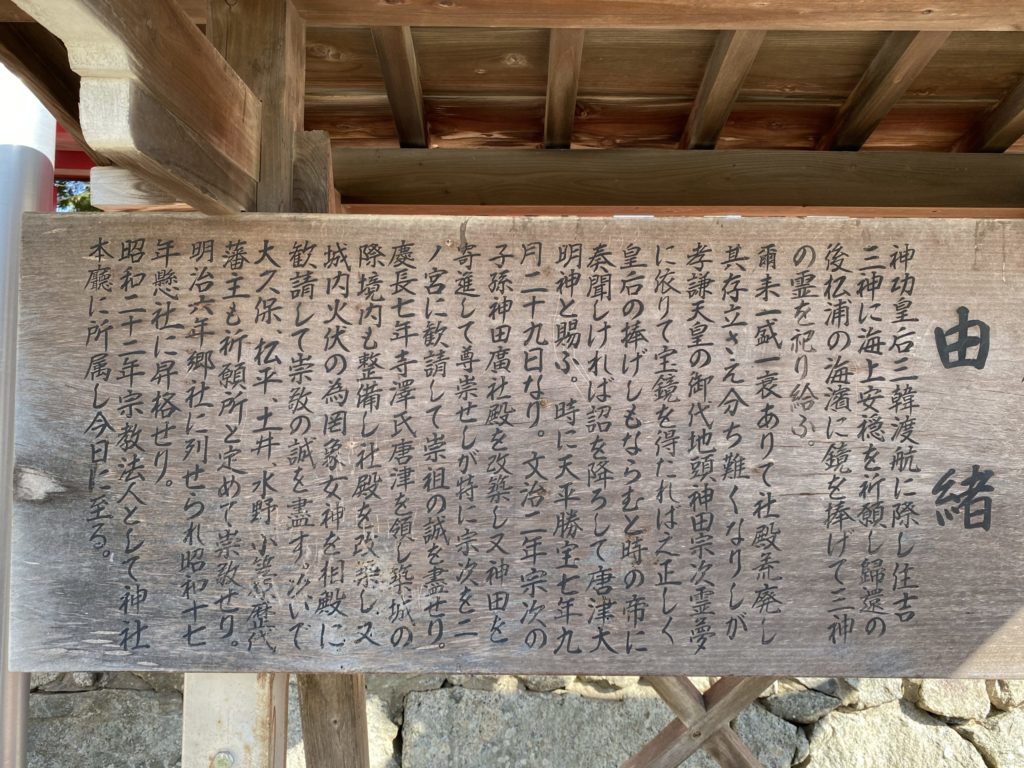 由緒
神功皇后三韓渡航に際し住吉
三神に海上安穏を祈願し歸還の
後松浦の海濱に鏡を捧げて三神
の霊を祀り給ふ。
爾来一盛一衰ありて社殿荒廃し
其存立さえ分ち難くなりしが
孝謙天皇の御代地頭神田宗次霊夢
に依りて宝鏡を得たれはえ正しく
皇后の捧げしもならむと時の帝に
奏聞しければ詔を降ろして唐津大
明神と賜ふ。時に天平勝宝七年九
月二十九日なり。文治二年宗次の
子孫神田廣社殿を改築し又神田を
寄進して尊崇せしが特に宗次を二
ノ宮に歓請して崇祖の誠を盡せり。
慶長七年寺澤氏唐津を領し築城の
際境内も整備し社殿を改築し又
城内火伏の為罔象女神を相殿に
歓請して崇敬の誠を盡す。次いで
大久保、松平、土井、水野、小笠原歴代
藩主も祈願所と定めて崇敬せり。
明治六年郷社に列せられ昭和十七
年縣社に昇格せり。
昭和二十二年宗教法人として神社
本廳に所属し今日に至る。